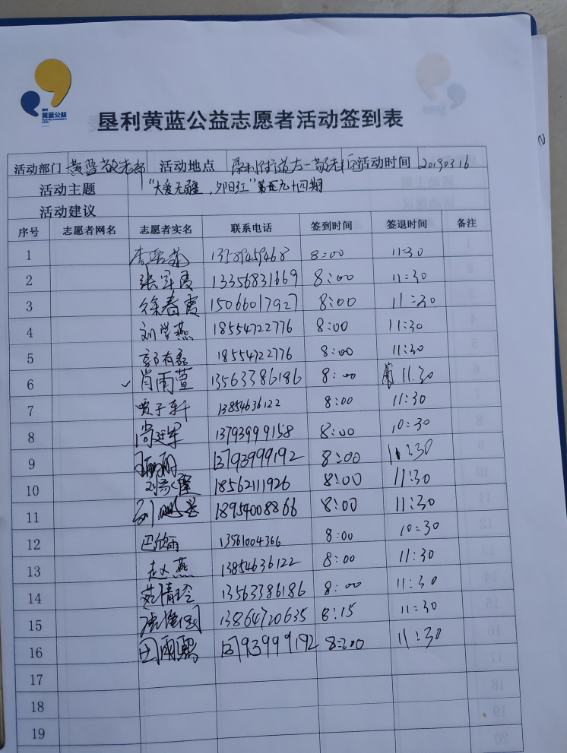 黄蓝公益
垦利黄蓝公益志愿者活动签到表
活动部门 黄蓝敬老部 活动地点 敬老 活动时间 20190316
活动主题 "大爱无疆,夕阳红"第五九十四期
活动建议
序号 志愿者网名 志愿者实名 联系电话 签到时间 签退时间 备注
1 8:00 11:30
2 张军霞 13356831669 8:00 11:30
3 徐春霞 15066017927 8:00 11:30
4 刘学燕 18554722776 8:00 11:30
5 18554722776 8:00 11:30
6 肖雨萱 13563386186 8:00 11:30
7 贾子轩 13854636122 8:00 11:30
8 尚延军 13793999158 8:00 10:30
9 13793999192 8:00 10:30
10 18562111926 8:00 11:30
11 18954008866 8:00 11:30
12 巴欣雨 13581004366 8:00 10:30
13 赵燕 13854636122 8:00 11:30
14 13563386186 8:00 11:30
15 13864720635 8:15 11:30
16 13793999192 8:00 11:30
17
18
19